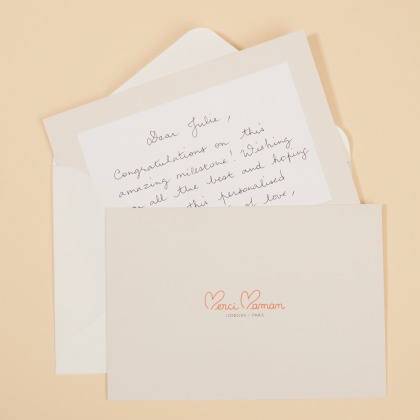 Dear Julie,
Congratulations on this
amazing milestone! Wishing
all the best and hoping
this personalised
of love,
Merci Maman
LONDON • PARIS